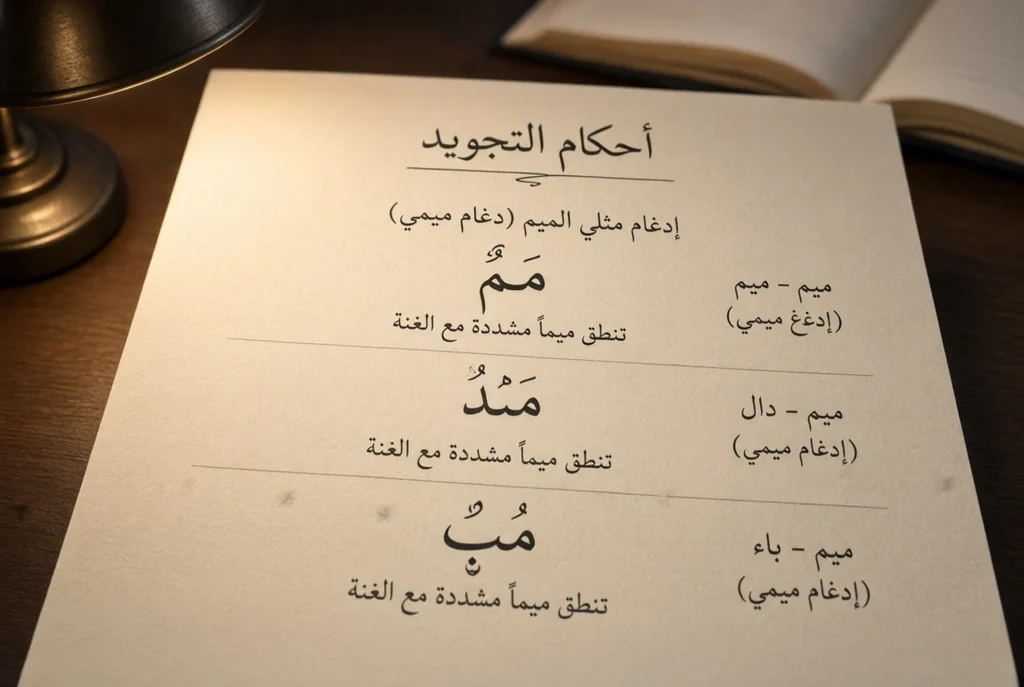 أحكام التجويد
إدغام مثلي الميم (دغام ميمي)
ميم – ميم
(إدغغ ميمي)
تنطق ميماً مشددة مع الغنة
ميم – دال
(إدغام ميمي)
تنطق ميماً مشددة مع الغنة
ميم – باء
(إدغام ميمي)
تنطق ميماً مشددة مع الغنة